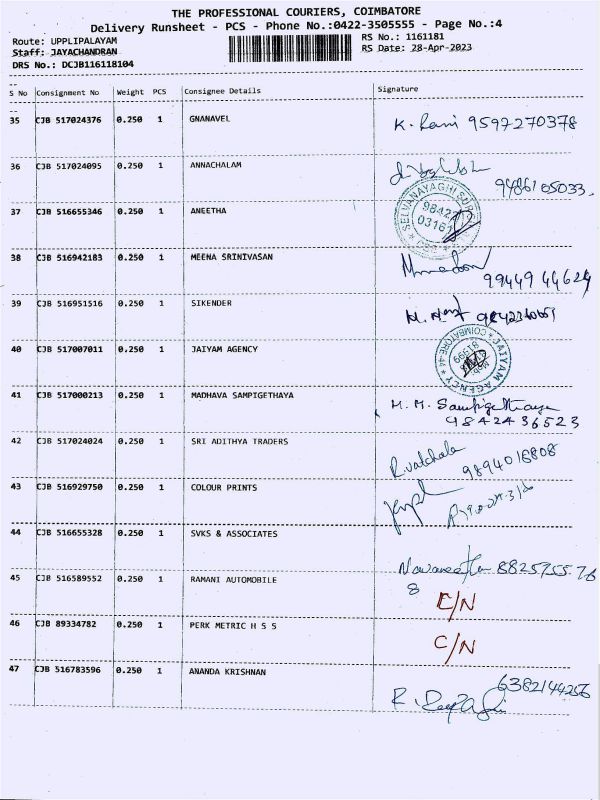 THE PROFESSIONAL COURIERS, COIMBATORE
Delivery Runsheet - PCS - Phone No.:0422-3505555 - Page No.:4
Route: UPPLIPALAYAM RS No.: 1161181
Staff: JAYACHANDRAN RS Date: 28-Apr-2023
DRS No.: DCJB116118104
S No Consignment No Weight PCS Consignee Details Signature
35 CJB 517024376 0.250 1 GNANAVEL K. Rani 9597270378
36 CJB 517024095 0.250 1 ANNACHALAM
9486105033
37 CJB 516655346 0.250 1 ANEETHA
38 CJB 516942183 0.250 1 MEENA SRINIVASAN
99449 44624
39 CJB 516951516 0.250 1 SIKENDER
40 CJB 517007011 0.250 1 JAIYAM AGENCY JAIYAM AGENCY COIMBATORE-44
41 CJB 517000213 0.250 1 MADHAVA SAMPIGETHAYA M. M. Sampigethaya
9842436523
42 CJB 517024024 0.250 1 SRI ADITHYA TRADERS
9894016808
43 CJB 516929750 0.250 1 COLOUR PRINTS
44 CJB 516655328 0.250 1 SVKS & ASSOCIATES
45 CJB 516589552 0.250 1 RAMANI AUTOMOBILE
8
C/N
46 CJB 89334782 0.250 1 PERK METRIC H S S C/N
47 CJB 516783596 0.250 1 ANANDA KRISHNAN 6382144256